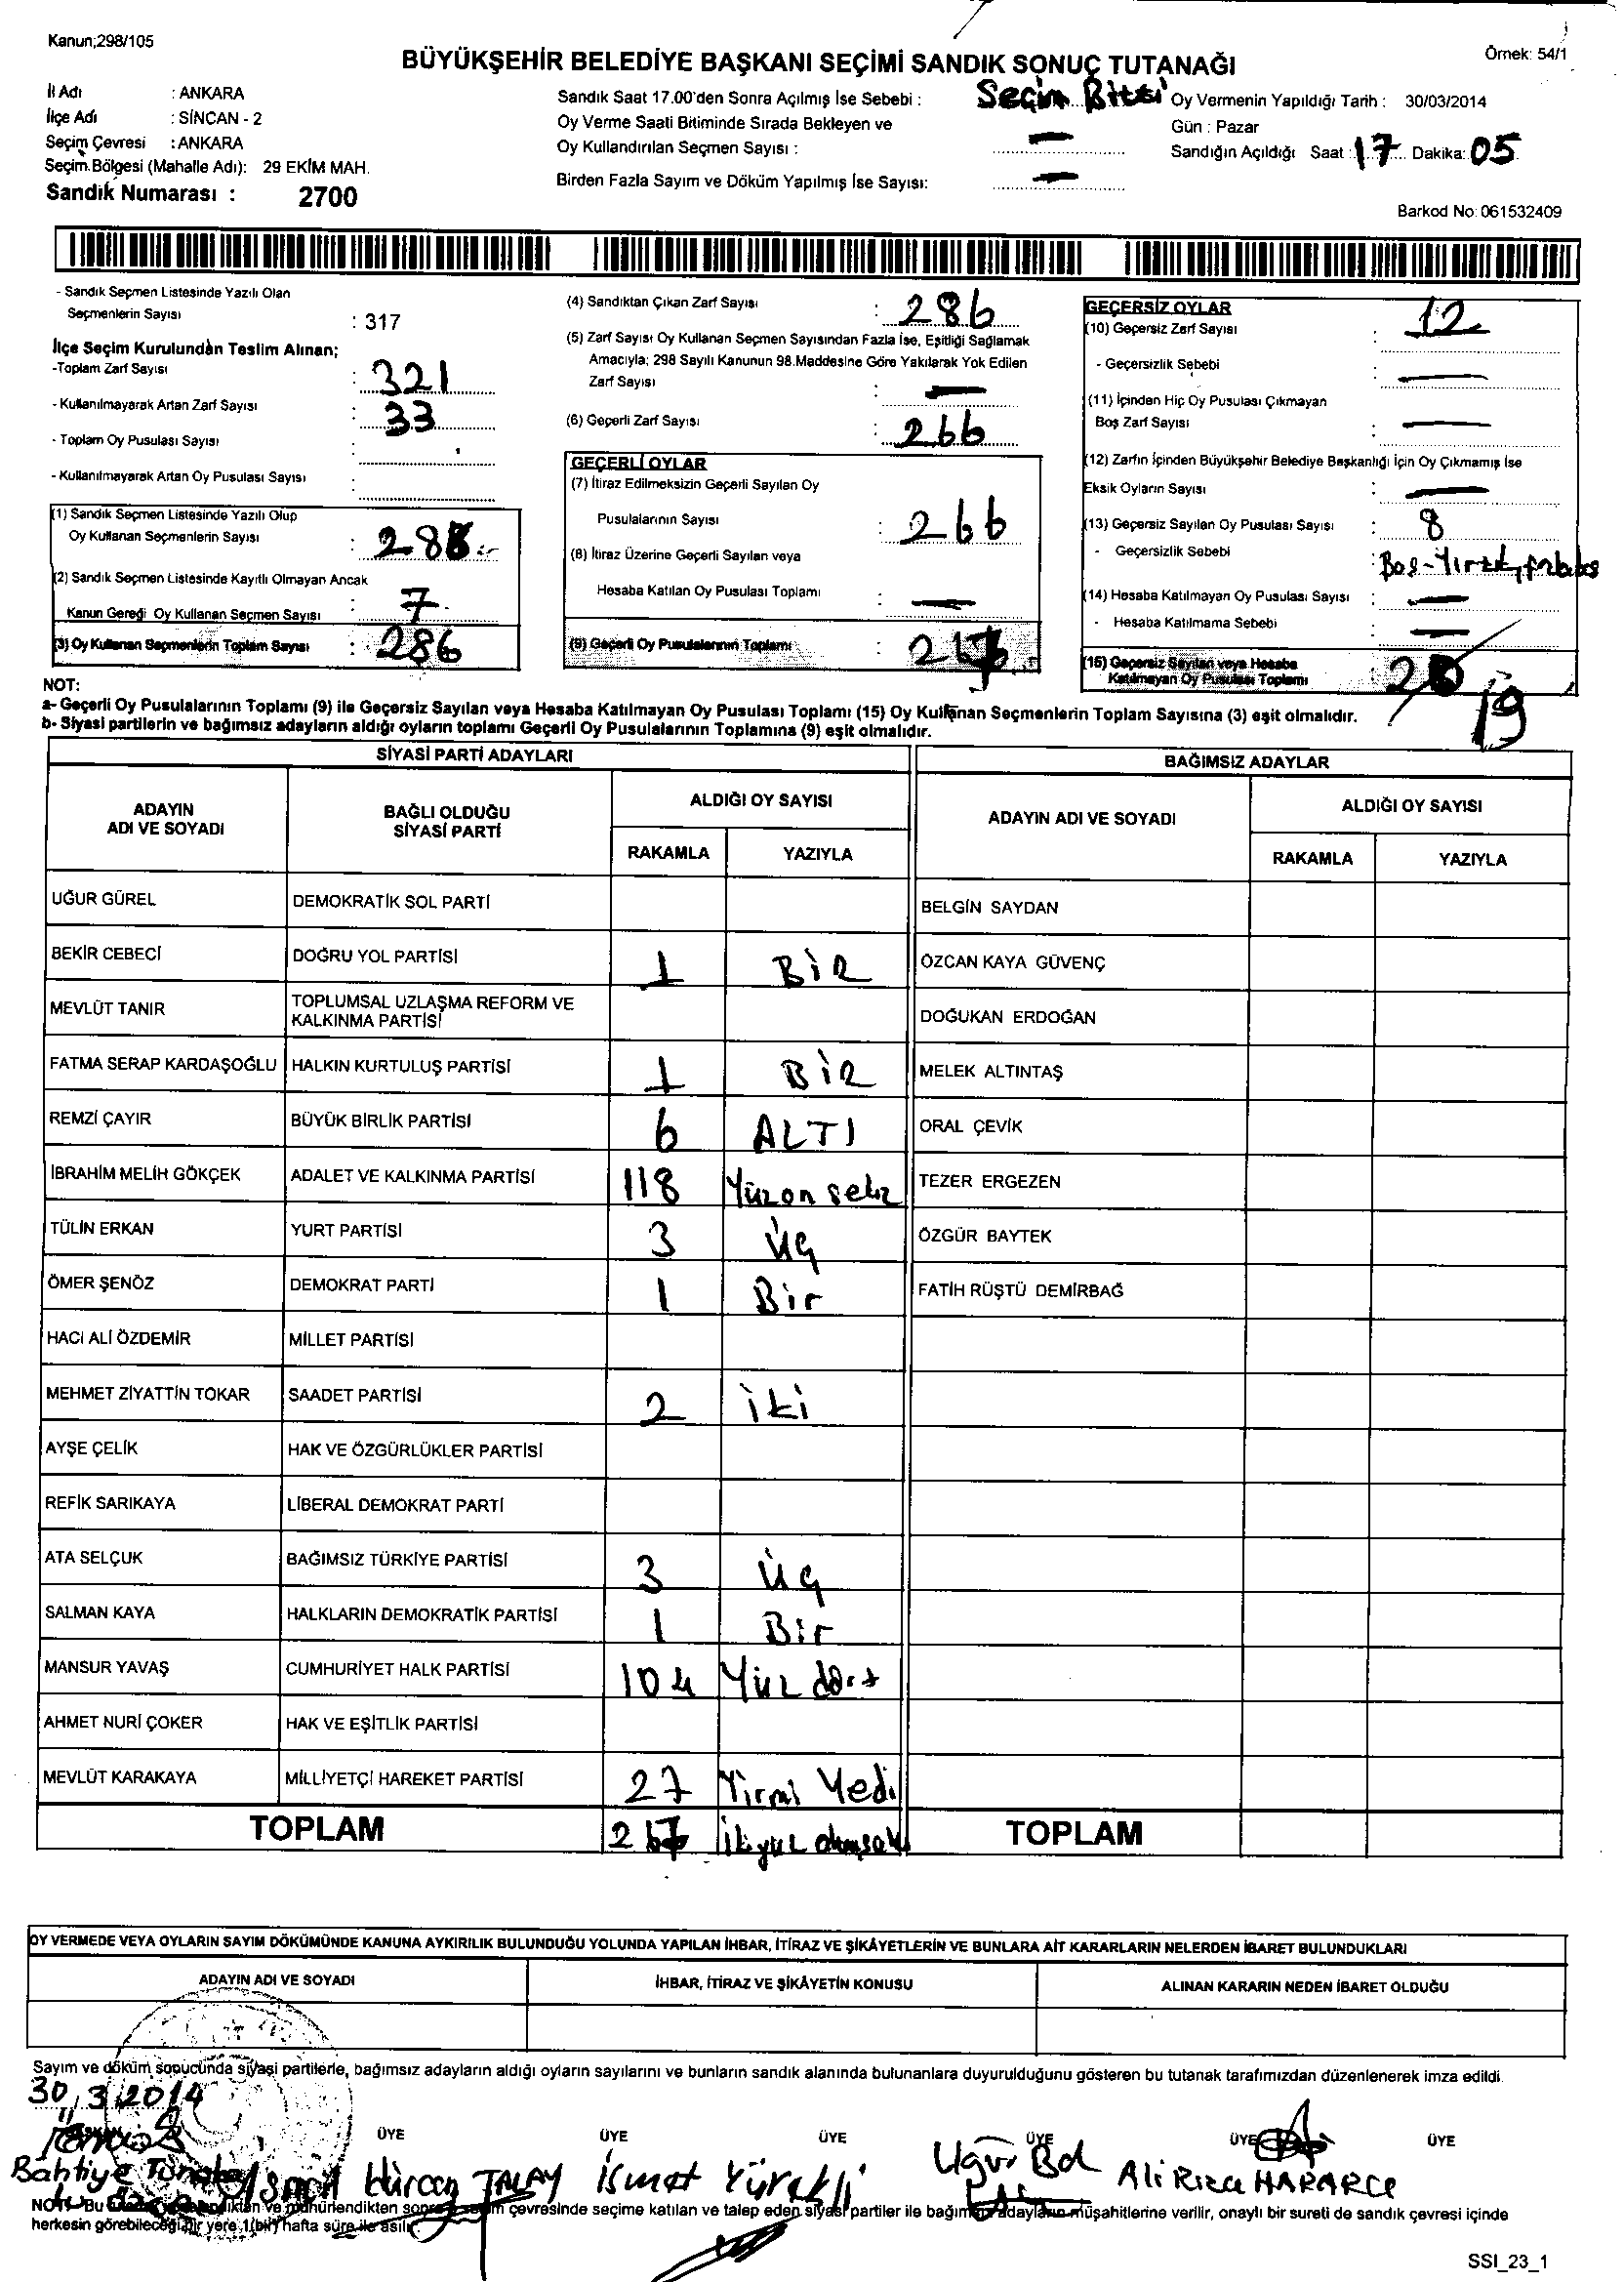 Kanun;298/105
BÜYÜKŞEHİR BELEDİYE BAŞKANI SEÇİMİ SANDIK SONUÇ TUTANAĞI
Örnek: 54/1
İl Adı : ANKARA
İlçe Adı : SİNCAN - 2
Seçim Çevresi : ANKARA
Seçim Bölgesi (Mahalle Adı): 29 EKİM MAH.
Sandık Numarası : 2700
Sandık Saat 17.00'den Sonra Açılmış İse Sebebi : Seçim Bitti
Oy Verme Saati Bitiminde Sırada Bekleyen ve
Oy Kullandırılan Seçmen Sayısı : —
Birden Fazla Sayım ve Döküm Yapılmış İse Sayısı: —
Oy Vermenin Yapıldığı Tarih : 30/03/2014
Gün : Pazar
Sandığın Açıldığı Saat : 17 Dakika: 05
Barkod No: 061532409
- Sandık Seçmen Listesinde Yazılı Olan
Seçmenlerin Sayısı : 317
İlçe Seçim Kurulundan Teslim Alınan;
-Toplam Zarf Sayısı : 321
- Kullanılmayarak Artan Zarf Sayısı : 33
- Toplam Oy Pusulası Sayısı :
- Kullanılmayarak Artan Oy Pusulası Sayısı :
(1) Sandık Seçmen Listesinde Yazılı Olup
Oy Kullanan Seçmenlerin Sayısı :
(2) Sandık Seçmen Listesinde Kayıtlı Olmayan Ancak
Kanun Gereği Oy Kullanan Seçmen Sayısı : 7
(3) Oy Kullanan Seçmenlerin Toplam Sayısı : 286
(4) Sandıktan Çıkan Zarf Sayısı : 286
(5) Zarf Sayısı Oy Kullanan Seçmen Sayısından Fazla İse, Eşitliği Sağlamak
Amacıyla; 298 Sayılı Kanunun 98.Maddesine Göre Yakılarak Yok Edilen
Zarf Sayısı : —
(6) Geçerli Zarf Sayısı : 266
GEÇERLİ OYLAR
(7) İtiraz Edilmeksizin Geçerli Sayılan Oy
Pusulalarının Sayısı : 266
(8) İtiraz Üzerine Geçerli Sayılan veya
Hesaba Katılan Oy Pusulası Toplamı : —
(9) Geçerli Oy Pusulalarının Toplamı : 267
GEÇERSİZ OYLAR
(10) Geçersiz Zarf Sayısı : 12
- Geçersizlik Sebebi : —
(11) İçinden Hiç Oy Pusulası Çıkmayan
Boş Zarf Sayısı : —
(12) Zarfın İçinden Büyükşehir Belediye Başkanlığı İçin Oy Çıkmamış İse
Eksik Oyların Sayısı : —
(13) Geçersiz Sayılan Oy Pusulası Sayısı : 8
- Geçersizlik Sebebi : Boş-Yırtık,
(14) Hesaba Katılmayan Oy Pusulası Sayısı : —
- Hesaba Katılmama Sebebi : —
(15) Geçersiz Sayılan veya Hesaba
Katılmayan Oy Pusulası Toplamı : 20 19
NOT:
a- Geçerli Oy Pusulalarının Toplamı (9) ile Geçersiz Sayılan veya Hesaba Katılmayan Oy Pusulası Toplamı (15) Oy Kullanan Seçmenlerin Toplam Sayısına (3) eşit olmalıdır.
b- Siyasi partilerin ve bağımsız adayların aldığı oyların toplamı Geçerli Oy Pusulalarının Toplamına (9) eşit olmalıdır.
SİYASİ PARTİ ADAYLARI
ADAYIN ADI VE SOYADI BAĞLI OLDUĞU SİYASİ PARTİ ALDIĞI OY SAYISI
RAKAMLA YAZIYLA
UĞUR GÜREL DEMOKRATİK SOL PARTİ
BEKİR CEBECİ DOĞRU YOL PARTİSİ 1 BİR
MEVLÜT TANIR TOPLUMSAL UZLAŞMA REFORM VE KALKINMA PARTİSİ
FATMA SERAP KARDAŞOĞLU HALKIN KURTULUŞ PARTİSİ 1 BİR
REMZİ ÇAYIR BÜYÜK BİRLİK PARTİSİ 6 ALTI
İBRAHİM MELİH GÖKÇEK ADALET VE KALKINMA PARTİSİ 118 Yüzon sekiz
TÜLİN ERKAN YURT PARTİSİ 3 üç
ÖMER ŞENÖZ DEMOKRAT PARTİ 1 Bir
HACI ALİ ÖZDEMİR MİLLET PARTİSİ
MEHMET ZİYATTİN TOKAR SAADET PARTİSİ 2 iki
AYŞE ÇELİK HAK VE ÖZGÜRLÜKLER PARTİSİ
REFİK SARIKAYA LİBERAL DEMOKRAT PARTİ
ATA SELÇUK BAĞIMSIZ TÜRKİYE PARTİSİ 3 üç
SALMAN KAYA HALKLARIN DEMOKRATİK PARTİSİ 1 Bir
MANSUR YAVAŞ CUMHURİYET HALK PARTİSİ 104 Yüz dört
AHMET NURİ ÇOKER HAK VE EŞİTLİK PARTİSİ
MEVLÜT KARAKAYA MİLLİYETÇİ HAREKET PARTİSİ 27 Yirmi Yedi
TOPLAM 267
BAĞIMSIZ ADAYLAR
ADAYIN ADI VE SOYADI ALDIĞI OY SAYISI
RAKAMLA YAZIYLA
BELGİN SAYDAN
ÖZCAN KAYA GÜVENÇ
DOĞUKAN ERDOĞAN
MELEK ALTINTAŞ
ORAL ÇEVİK
TEZER ERGEZEN
ÖZGÜR BAYTEK
FATİH RÜŞTÜ DEMİRBAĞ
TOPLAM
OY VERMEDE VEYA OYLARIN SAYIM DÖKÜMÜNDE KANUNA AYKIRILIK BULUNDUĞU YOLUNDA YAPILAN İHBAR, İTİRAZ VE ŞİKÂYETLERİN VE BUNLARA AİT KARARLARIN NELERDEN İBARET BULUNDUKLARI
ADAYIN ADI VE SOYADI İHBAR, İTİRAZ VE ŞİKÂYETİN KONUSU ALINAN KARARIN NEDEN İBARET OLDUĞU
Sayım ve döküm sonucunda siyasi partilerle, bağımsız adayların aldığı oyların sayılarını ve bunların sandık alanında bulunanlara duyurulduğunu gösteren bu tutanak tarafımızdan düzenlenerek imza edildi.
30/3/2014
ÜYE ÜYE ÜYE ÜYE ÜYE ÜYE
Bahtiye TALAY İsmet Yürekli Uğur Ali Rıza
NOT: Bu mühürlendikten sonra seçim çevresinde seçime katılan ve talep eden siyasi partiler ile bağımsız adayların müşahitlerine verilir, onaylı bir sureti de sandık çevresi içinde
herkesin görebileceği bir yere 1(bir) hafta süre ile asılır.
SSI_23_1